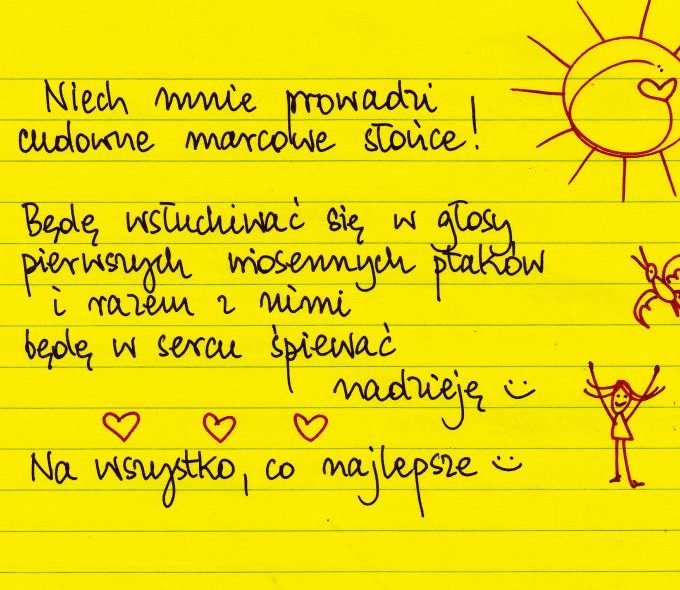 Niech mnie prowadzi
cudowne marcowe słońce!
Będę wsłuchiwać się w głosy
pierwszych wiosennych ptaków
i razem z nimi
będę w sercu śpiewać
nadzieję :)
Na wszystko, co najlepsze :)